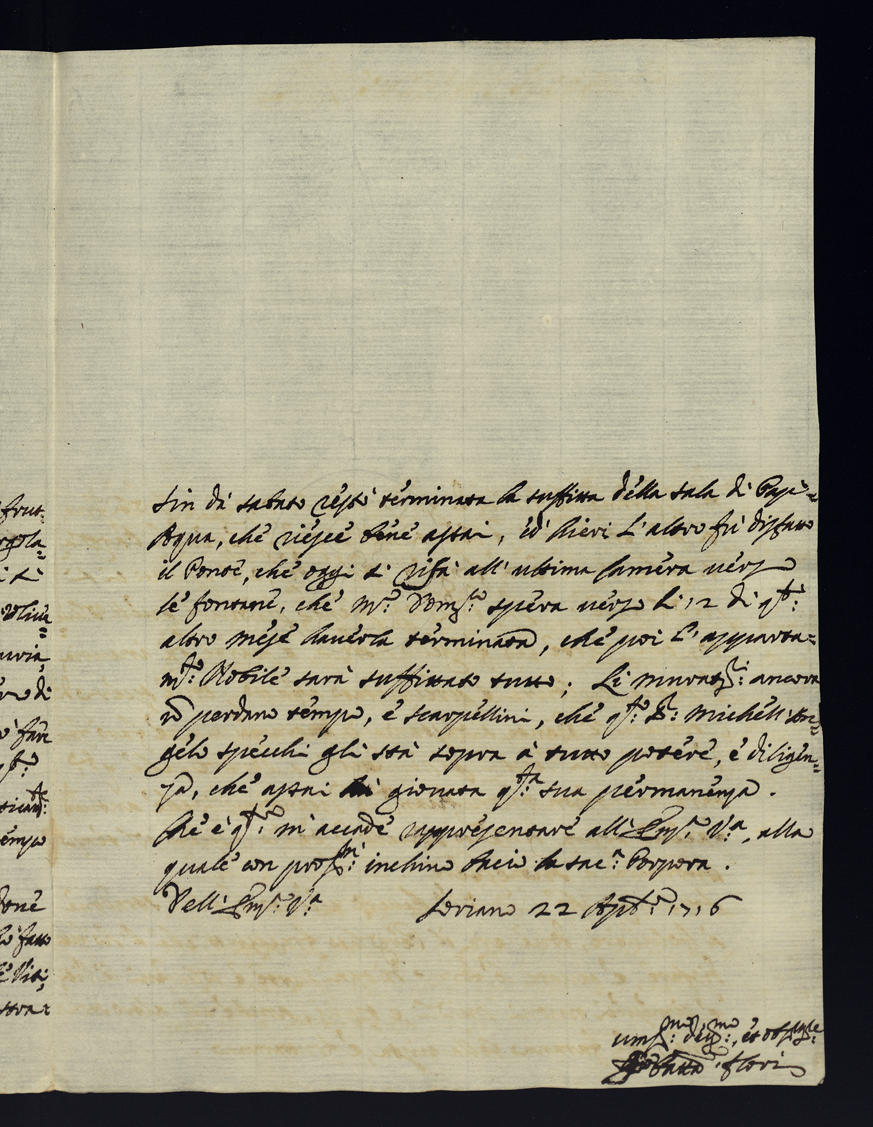 frut
rgola=
i si
ò fare
tempo
Sin da sabato restò terminata la suffitta della sala di Pape=
Aqua, che riesce bene assai, ed hieri l'altro fù disfatto
il Ponte, che oggi si rifà all'ultima Camera verso
le fontane, che Mro: Domco: spera verso li 12 di qto:
altro mese haverla terminata, che poi l'apparta=
mto: Nobile sarà suffittato tutto; Li muratri: ancora
nõ perdano tempo, e scarpellini, che qto: Sr: Michell'An=
gelo specchi gli stà sopra à tutto potere, e diligen=
za, che assai giovata qta sua permanenza.
Che è qto: m'accade rappresentare all'Emza: Va, alla
quale con profma: inchino bacio la sacra Porpora.
Dell'Emza: Va Soriano 22 Aple: 1716
umilmo: devmo:, et obligmo:
Batta Flori